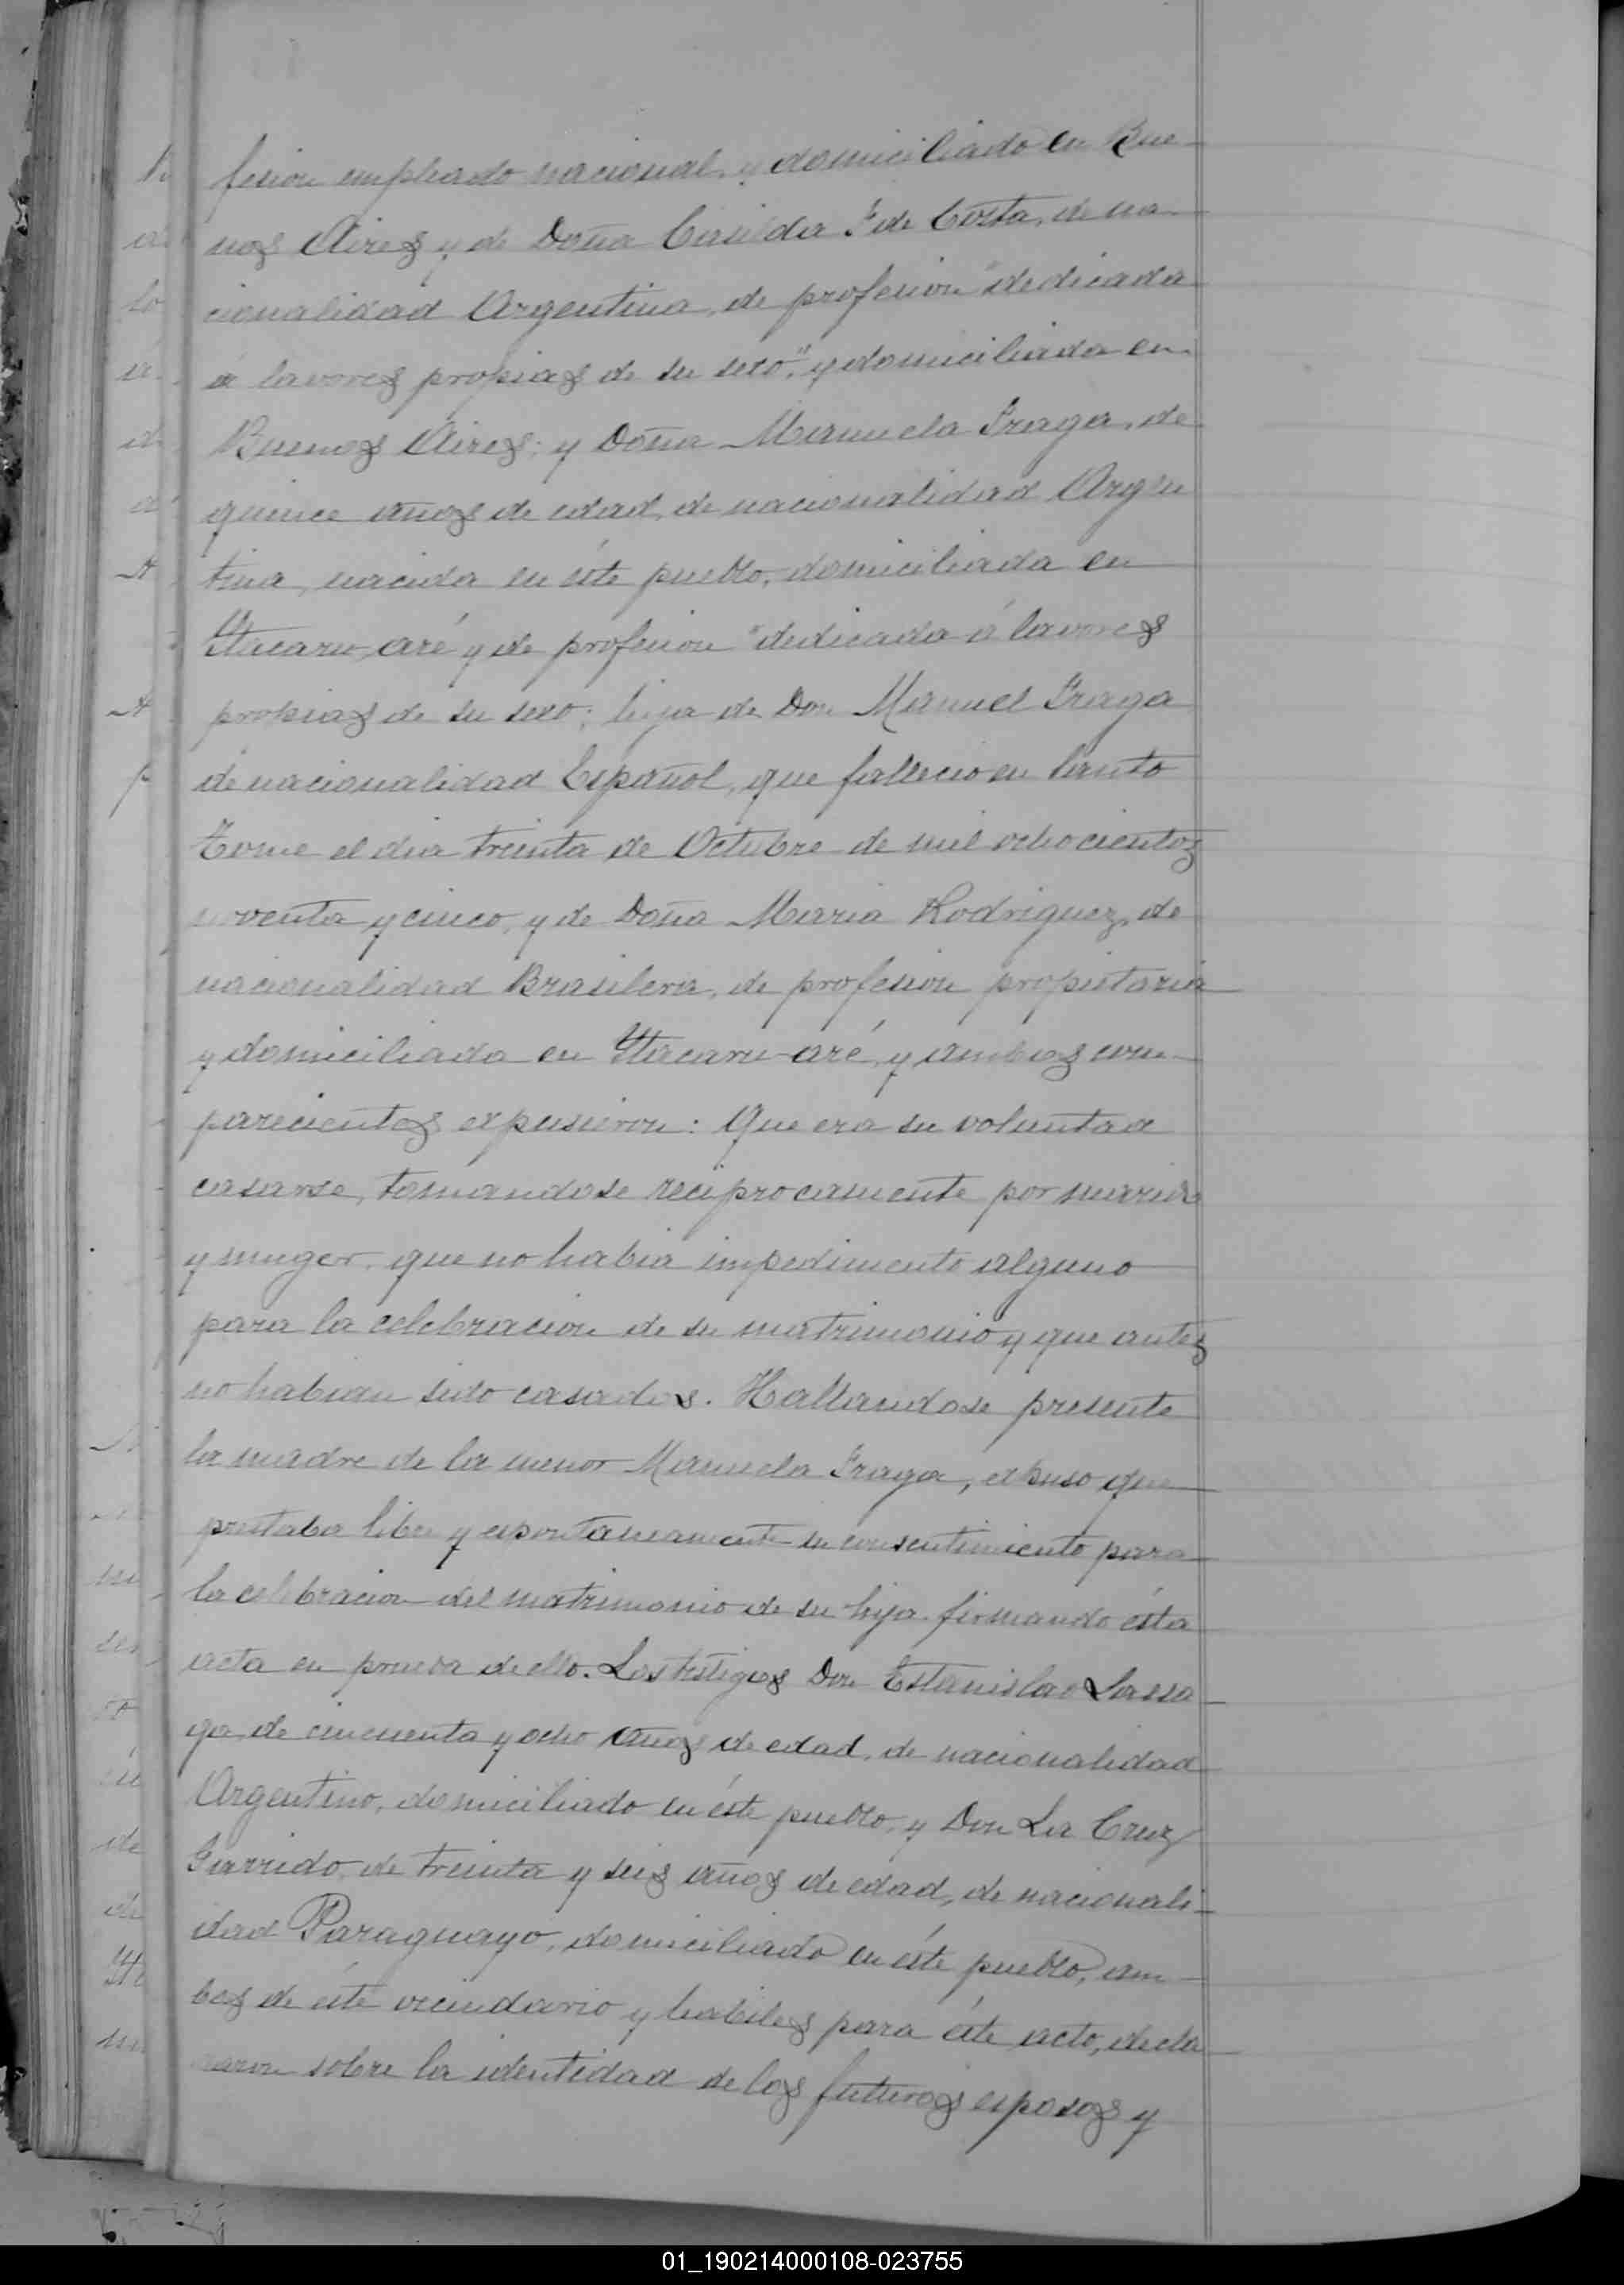 fesion empleado nacional, y domiciliado en Bue
nos Aires y de Doña Casilda F de Costa, de na
cionalidad Argentina, de profesion "dedicada
á lavores propias de su sexo", y domiciliada en
Buenos Aires; y Doña Manuela Fraga, de
quince años de edad, de nacionalidad Argen
tina, nacida en éste pueblo, domiciliada en
Ytacaru-aré y de profesion "dedicada á lavores
propias de su sexo; hija de Don Manuel Fraga
de nacionalidad Español, que fallecio en Santo
Tome el dia treinta de Octubre de mil ochocientos
noventa y cinco, y de Doña Maria Rodriguez, de
nacionalidad Brasilera, de profesion propietaria
y domiciliada en Ytacaru-aré, y ambos com
parecientes expusieron: Que era su voluntad
casarse, tomandose reciprocamente por marido
y muger, que no habia impedimento alguno
para la celebracion de su matrimonio y que antes
no habian sido casados. Hallandose presente
la madre de la menor Manuela Fraga, expuso que
prestaba libre y espontaneamente su consentimiento para
la celebracion del matrimonio de su hija firmando ésta
acta en prueba de ello. Los testigos Don Estanislao Lassa
ga, de cincuenta y ocho años de edad, de nacionalidad
Argentino, domiciliado en éste pueblo, y Don La Cruz
Garrido, de treinta y seis años de edad, de nacionali-
dad Paraguayo, domiciliado en éste pueblo, am-
bos de éste vecindario y habiles para éste acto, decla
raron sobre la identidad de los futuros esposos y
01_190214000108-023755